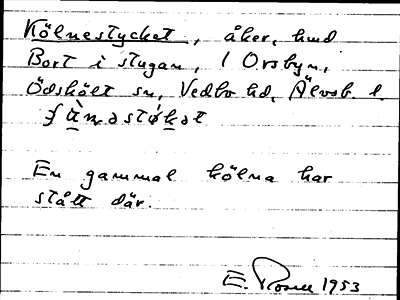 Kölnestycket, åker, hmd
Bort i stugan, 1 Orsbyn,
Ödskölt sn, Vedbo hd, Älvsb. l.

En gammal kölna har
stått där.
E. Rosen 1953